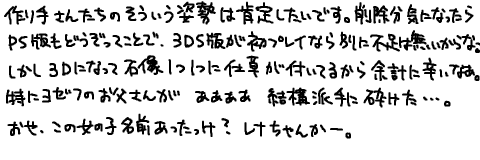 作り手さんたちのそういう姿勢は肯定したいです。削除分気になったら
PS版もどうぞってことで、3DS版が初プレイなら別に不足は無いからな。
しかし3Dになって石像1つ1つに仕草が付いてるから余計に辛いなあ。
特にヨゼフのお父さんが ああああ 結構派手に砕けた…。
おせ、この女の子名前あったっけ? レナちゃんかー。